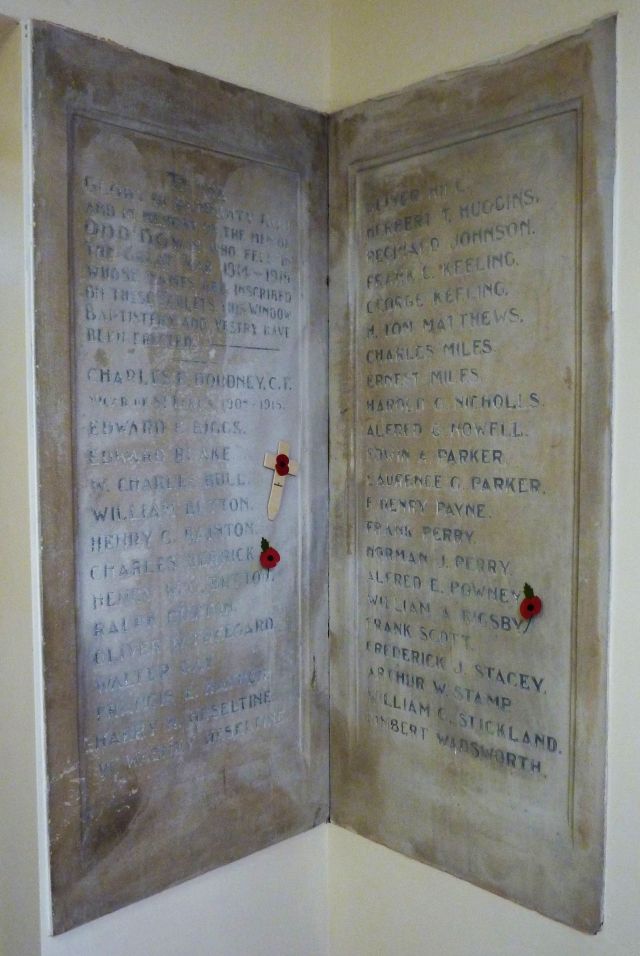 TO THE
GLORY OF
AND IN MEMORY OF THE MEN OF
ODD DOWN WHO FELL IN
THE GREAT WAR 1914-1919
WHOSE NAMES ARE INSCRIBED
ON THESE TABLETS THIS WINDOW
BAPTISTERY AND VESTRY HAVE
BEEN ERECTED.
CHARLES E. DOUDNEY, C.F.
VICAR OF ST LUKE'S 1908-1915.
EDWARD BIGGS.
EDWARD BLAKE
W. CHARLES BULL.
WILLIAM
HENRY G.
CHARLES
HENRY W.
RALPH
OLIVER FREEGARD.
WALTER
FRANCIS E.
HARRY HESELTINE
W. HESELTINE
OLIVER HILL.
HERBERT T. HUGGINS.
REGINALD JOHNSON.
FRANK E. KEELING.
GEORGE KEELING.
H. TOM MATTHEWS.
CHARLES MILES
ERNEST MILES
HAROLD G. NICHOLLS.
ALFRED G. NOWELL.
EDWIN A. PARKER.
LAURENCE G. PARKER.
F. HENRY PAYNE.
FRANK PERRY
NORMAN J. PERRY.
ALFRED E. POWNEY
WILLIAM A. RIGSBY
FRANK SCOTT.
FREDERICK J. STACEY.
ARTHUR W. STAMP
WILLIAM C. STICKLAND.
WADSWORTH.